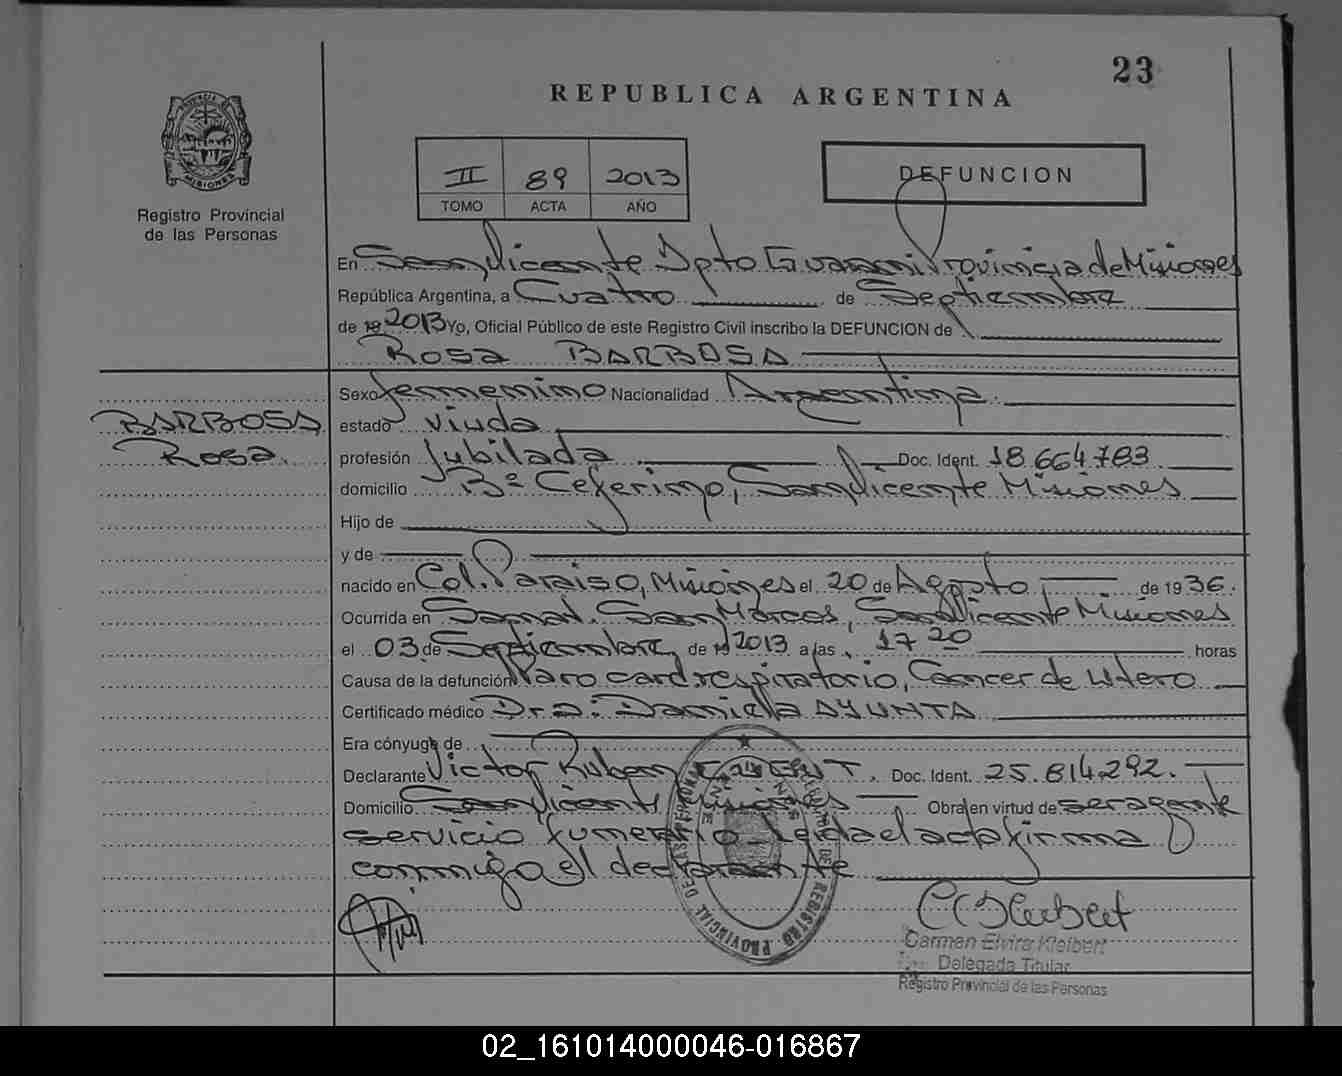 23
REPUBLICA ARGENTINA
PROVINCIA DE MISIONES
Registro Provincial
de las Personas
II 89 2013
TOMO ACTA AÑO
DEFUNCION
En San Vicente Dpto Guarani Provincia de Misiones
República Argentina, a Cuatro de Septiembre
de 19 2013 Yo, Oficial Público de este Registro Civil inscribo la DEFUNCION de
Rosa BARBOSA
BARBOSA
Rosa
Sexo femenino Nacionalidad Argentina
estado viuda
profesión Jubilada Doc. Ident. 18.664.783
domicilio Bº Ceferino, San Vicente Misiones
Hijo de
y de
nacido en Col. Paraiso, Misiones el 20 de Agosto de 1936.
Ocurrida en Sanat. San Marcos, San Vicente Misiones
el 03 de Septiembre de 19 2013 a las 17 20 horas
Causa de la defunción Paro cardrespiratorio, Cancer de Utero
Certificado médico Dra: Daniela AYUNTA
Era cónyuge de
Declarante Victor Ruben Doc. Ident. 25.814.292.
Domicilio San Vicente Misiones Obra en virtud de ser agente
servicio funerario Leida el acta firma
conmigo el declarante
REGISTRO PROVINCIAL DE LAS PERSONAS
Carmen Elvira Kleibert
Delegada Titular
Registro Provincial de las Personas
02_161014000046-016867